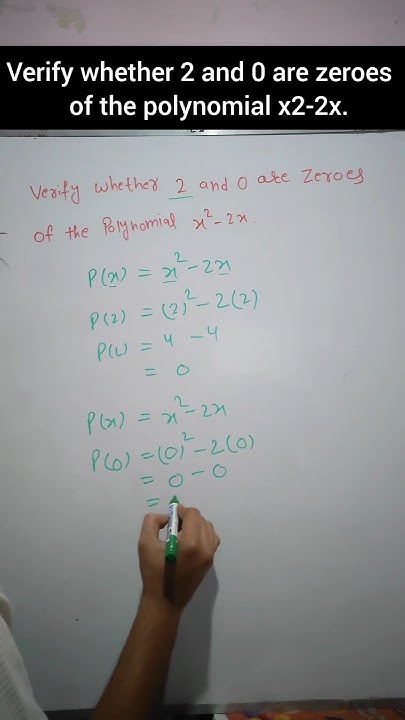 Verify whether 2 and 0 are zeroes
of the polynomial x2-2x.
Verify whether 2 and 0 are Zeroes
of the Polynomial x²-2x.
P(x) = x²-2x
P(2) = (2)²-2(2)
P(2) = 4 -4
= 0
P(x) = x²-2x
P(0) = (0)²-2(0)
= 0 - 0
=